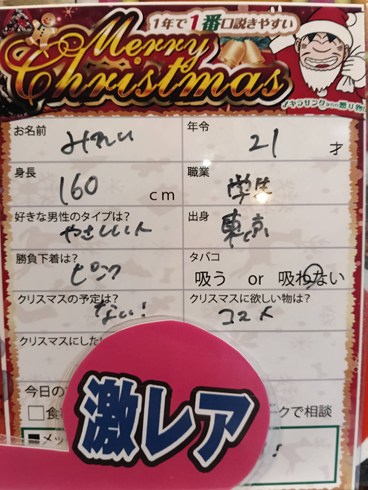 1年で1番口説きやすい
Merry
Christmas
お名前 みれい 年令 21 才
身長 160 cm 職業 学生
好きな男性のタイプは? やさしい人 出身 東京
勝負下着は? ピンク タバコ 吸う or 吸わない
クリスマスの予定は? ない! クリスマスに欲しい物は? コスメ
クリスマスにした
今日の
激レア
クで相談
メッ
!